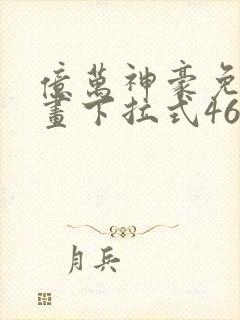 億萬神豪免
畫下拉式46
月兵